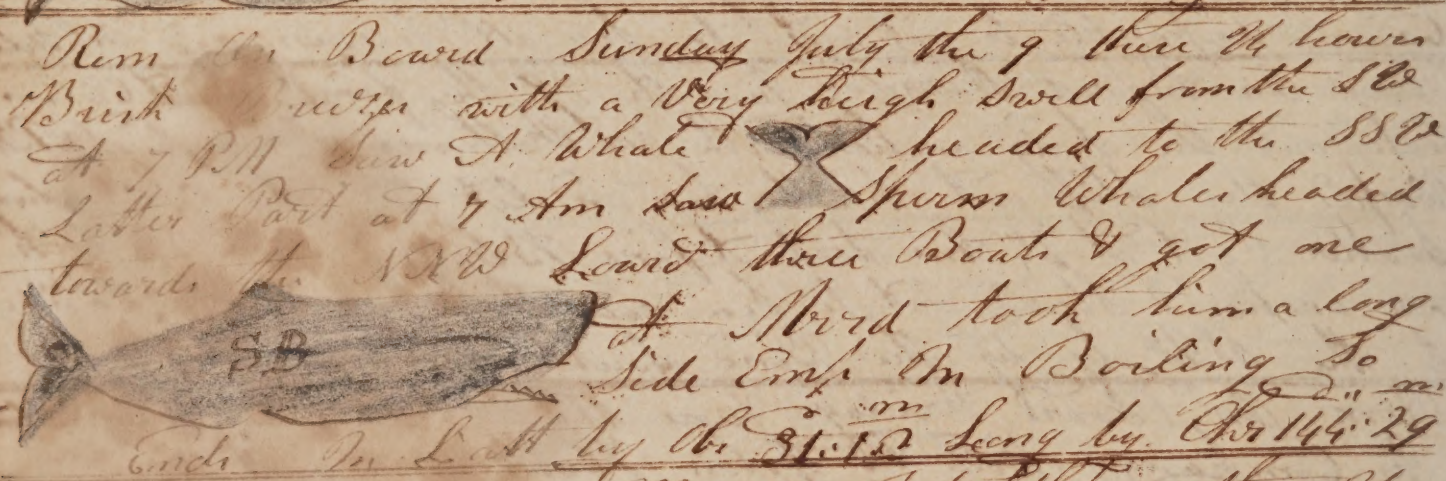 Rem On Board Sunday July the 9 these 24 howers
Brisk Breezes with a Very heigh Swell from the SW
at 7 PM Saw A Whale headed to the SSW
Latter Part at 7 Am Saw Sperm Whales headed
towards the NNW Lowrd three Boats & got one
At Merd took him a long
Side Emp In Boiling So
SB
Ends In Latt by Obs 31° 12 m Long by Chr 144 D 29 m